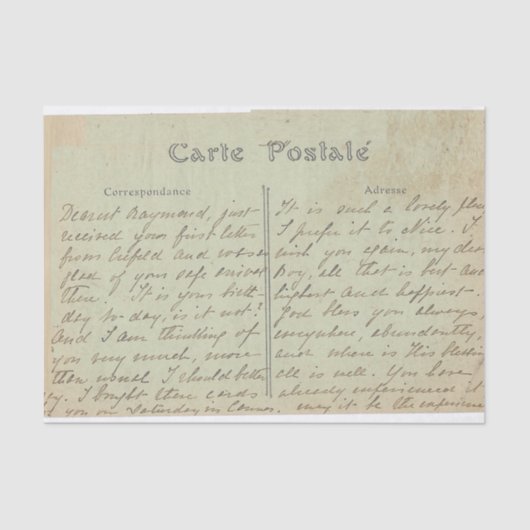 Carte Postale
Correspondance
Adresse
Dearest Raymond, just
received your first letter
from Crefeld and was so
glad of your safe arrival
there. It is your birth-
day to-day, is it not?
And I am thinking of
you very much, more
than usual I should better
say. I bought these cards
you on Saturday in Cannes.
It is such a lovely place
I prefer it to Nice. I
wish you again, my dear
Boy, all that is but
highest and happiest.
God bless you always,
everywhere, abundantly,
and where is His blessing
all is well. You have
already experienced it
may it be the experience